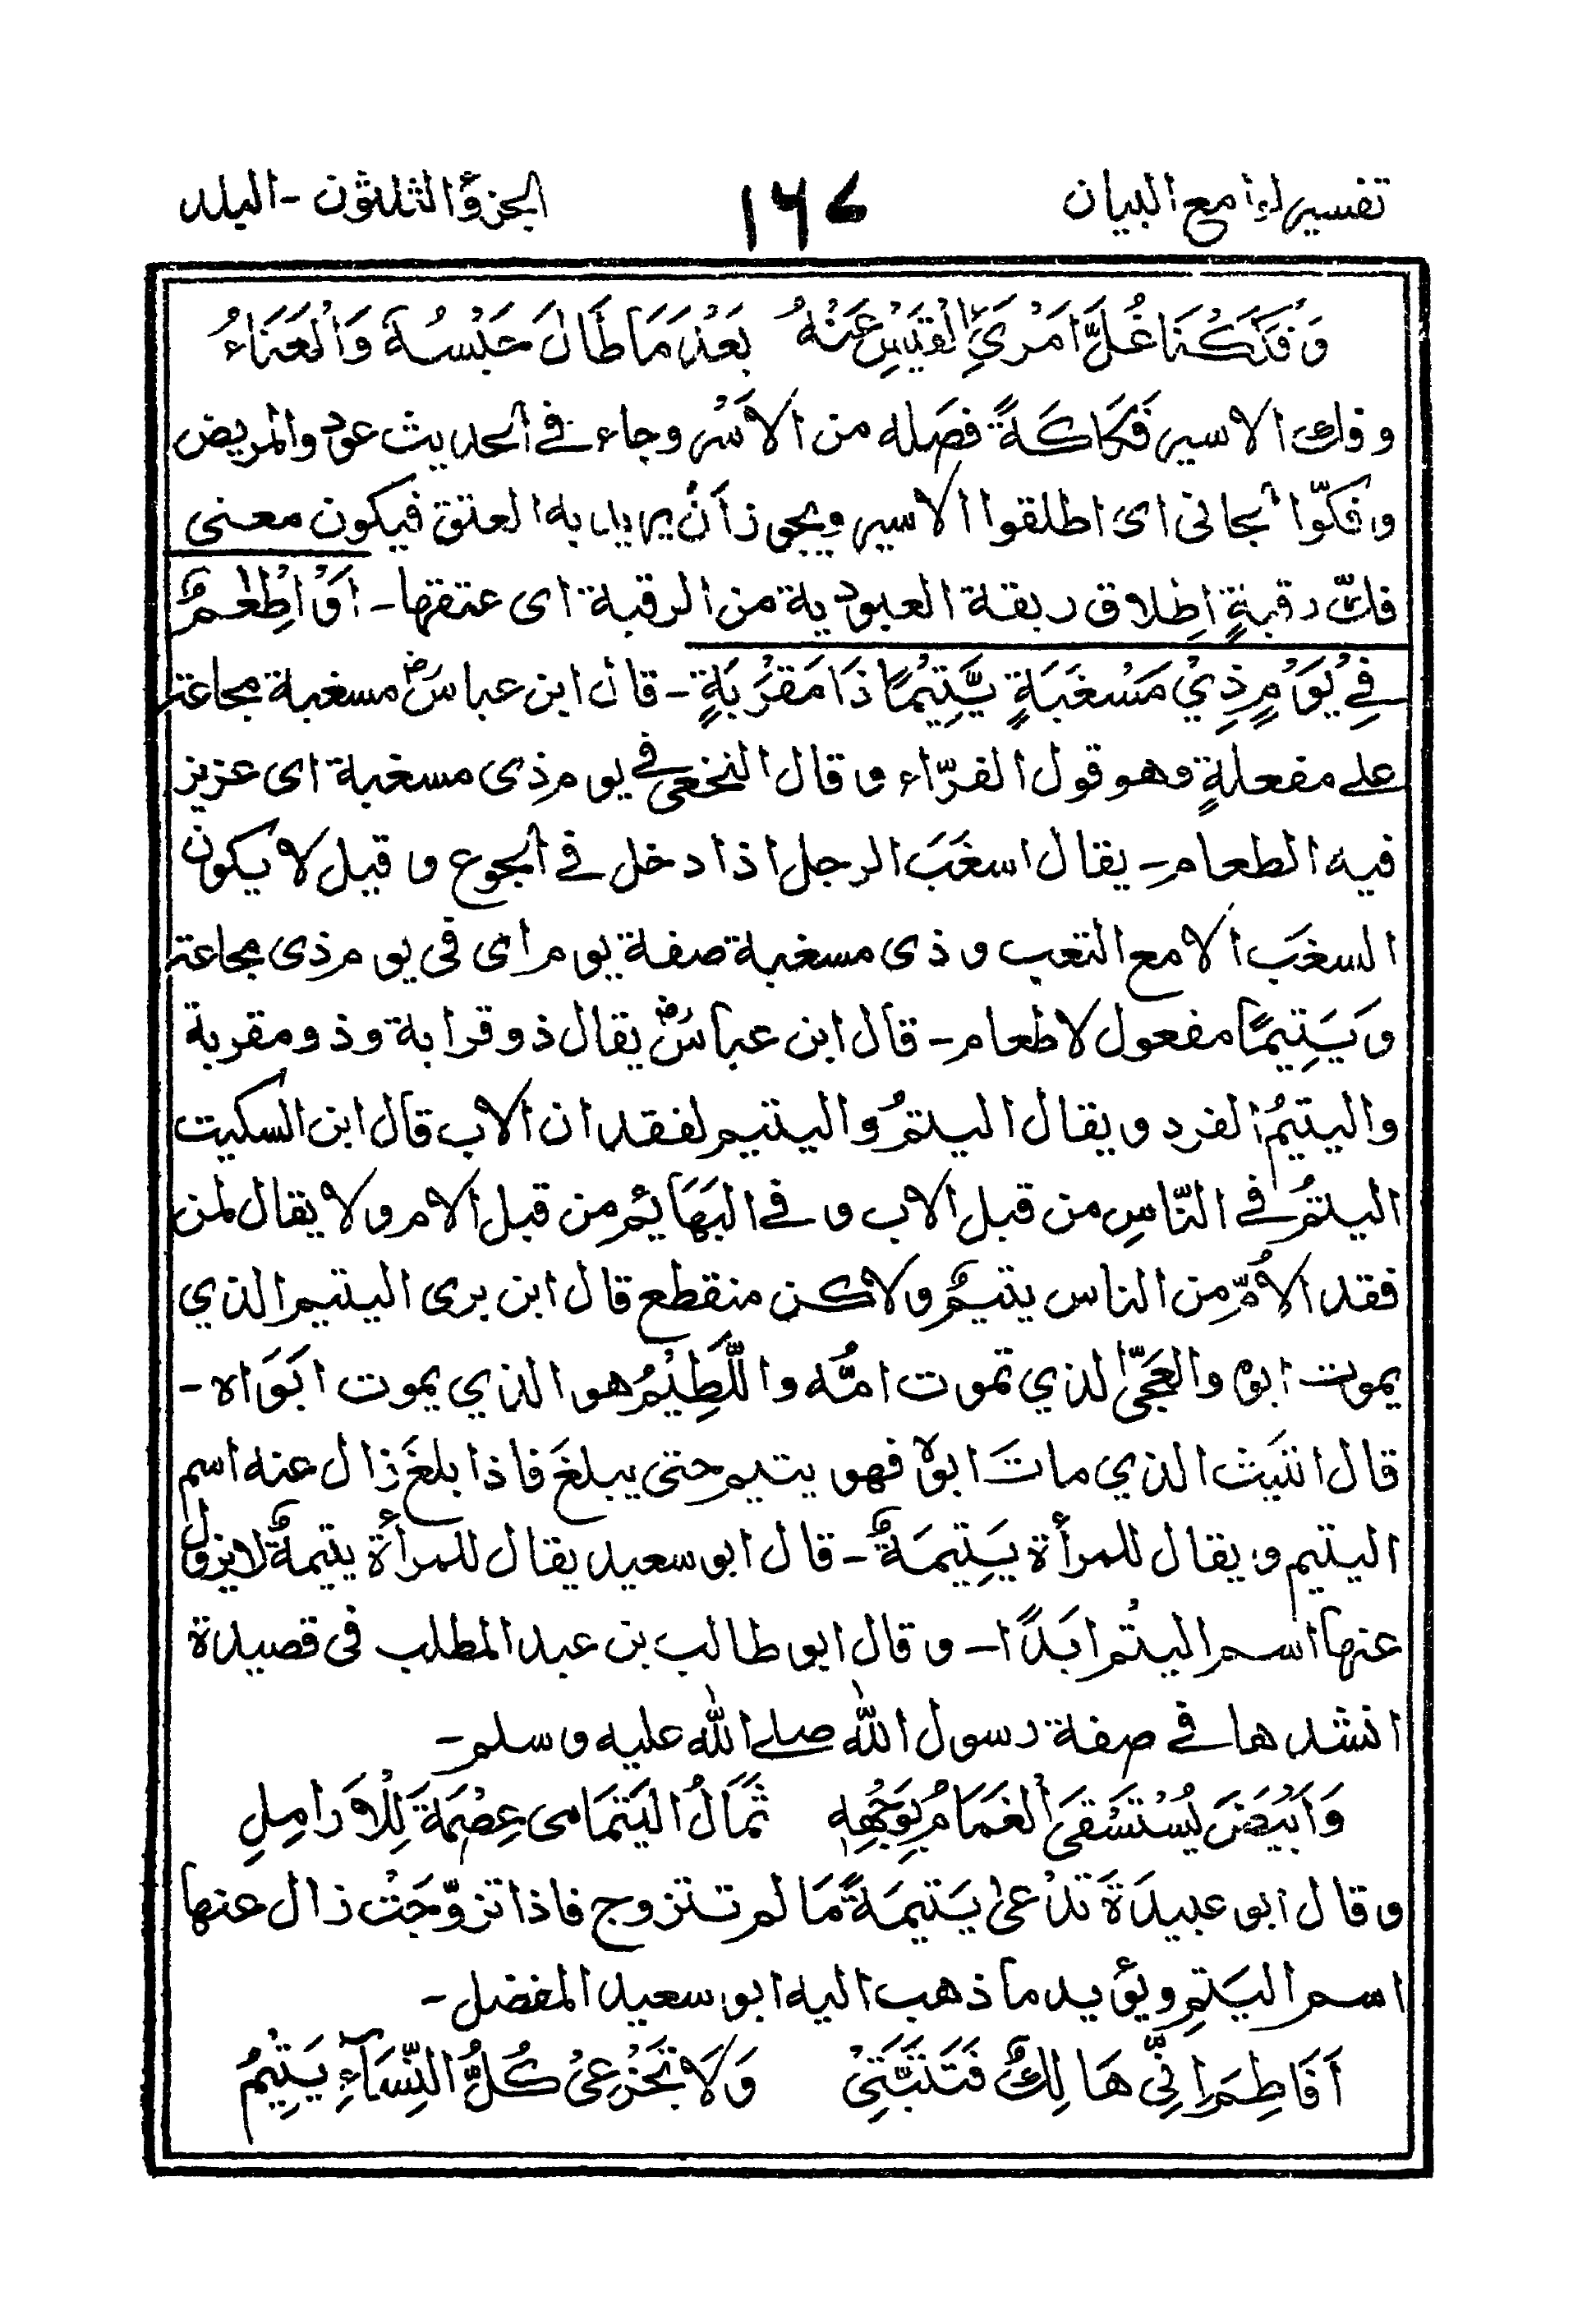 تفسير لوامع البيان ١٦٤ الجزؤ الثلثون - البلد
وَفَكَكْنَا غُلَّ امْرَئِ الْقَيْسِ عَنْهُ بَعْدَ مَا طَالَ حَبْسُهٗ وَالْعَنَاءُ
وفك الاسير فَكَاكَةً فصَله من الاَسْر وجاء في الحديث عودوا المريض
وفكّوا العانى اى اطلقوا الاسير ويجوز أنْ يراد به العتق فيكون معنى
فكّ رقبةٍ اِطلاق ربقة العبودية من الرقبة اى عتقها - اَوْ اِطْعٰمٌ
فِيْ يَوْمٍ ذِيْ مَسْغَبَةٍ يَّتِيْمًا ذَا مَقْرَبَةٍ - قال ابن عباسؓ مسغبة مجاعة
على مفعلةٍ وهو قول الفرّاء وقال النخعى في يوم ذى مسغبة اى عزيز
فيه الطعام - يقال اسغَبَ الرجل اذا دخل في الجوع وقيل لا يكون
السغَب الا مع التعب وذى مسغبة صفة يوم اى فى يوم ذى مجاعة
وَيَتِيمًا مفعول لاطعام - قال ابن عباسؓ يقال ذو قرابة وذو مقربة
واليتيمُ الفرد ويقال اليتمُ واليتيم لفقدان الاب قال ابن السكيت
اليتمُ في النّاسِ من قبل الاب وفي البَهَائم من قبل الام ولا يقال لمن
فقد الاُمّ من الناس يتيمٌ ولاكن منقطع قال ابن برى اليتيم الذي
يموت ابوه والعَجِّىُّ الذي تموت امُّه واللَّطِيْمُ هو الذي يموت ابَوَاه -
قال الليث الذي ماتَ ابوهُ فهو يتيم حتى يبلغَ فاذا بلغَ زال عنه اسم
اليتيم ويقال للمرأة يَتِيمَةٌ - قال ابو سعيد يقال للمرأة يتيمةٌ لا يزول
عنها اسم اليتُم ابَدًا - وقال ابو طالب بن عبد المطلب فى قصيدة
انشدها في صفة رسول الله صلى الله عليه وسلم -
وَاَبْيَضَ يُسْتَسْقَى الْغَمَامُ بِوَجْهِهٖ ثَمَالُ الْيَتَامٰى عِصْمَةٌ لِلْاَرَامِلِ
وقال ابو عبيدَةَ تدْعىٰ يَتيمَةً مَا لم تتزوج فاذا تزوّجَتْ زال عنها
اسم اليَتمِ ويؤيد ما ذهب اليه ابو سعيد المفضل -
اَفَاطِمَ اِنِّى هَالِكٌ فَتَثَبَّتِىْ وَلَا تَجْزَعِىْ كُلُّ النِّسَآءِ يَتِيْمُ